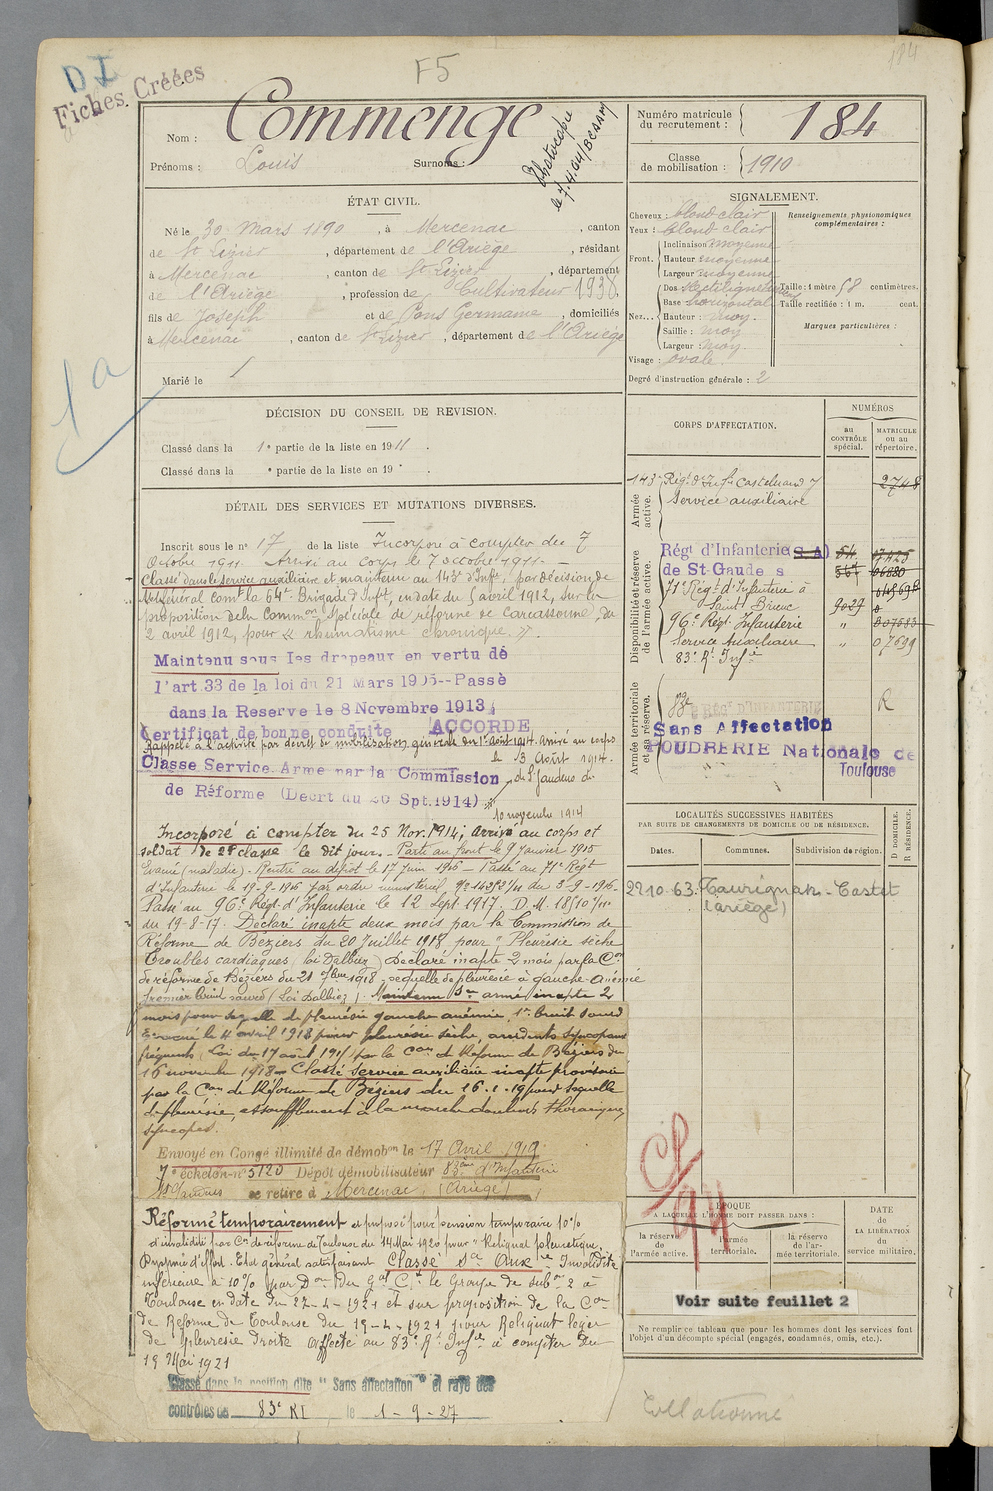 184
F5
D I
Fiches Créées
Nom : Commenge
Prénoms : Louis Surnoms :
Photocopie
le 7.4.04/
Numéro matricule
du recrutement : 184
Classe
de mobilisation : 1910
ÉTAT CIVIL.
Né le 30 mars 1890, à Mercenac, canton
de St Lizier, département de l'Ariège, résidant
à Mercenac, canton de St Lizier, département
de l'Ariège, profession de Cultivateur 1938
fils de Joseph et de Pons Germaine, domiciliés
à Mercenac, canton de St Lizier, département de l'Ariège
Marié le
1a
SIGNALEMENT.
Cheveux : blond clair
Yeux : blond clair
Front. Inclinaison moyenne
Hauteur moyenne
Largeur moyenne
Nez... Dos rectiligne
Base horizontal
Hauteur : moy.
Saillie : moy
Largeur : moy.
Visage : ovale.
Degré d'instruction générale : 2
Renseignements physionomiques
complémentaires :
Taille : 1 mètre 58 centimètres.
Taille rectifiée : 1 m. cent.
Marques particulières :
DÉCISION DU CONSEIL DE REVISION.
Classé dans la 1e partie de la liste en 1911.
Classé dans la e partie de la liste en 19 .
DÉTAIL DES SERVICES ET MUTATIONS DIVERSES.
Inscrit sous le no 17 de la liste Incorporé à compter du 7
Octobre 1911. Arrivé au corps le 7 octobre 1911. -
Classé dans le service auxiliaire et maintenu au 143e d'Infie, par décision de
Mr le Général comt la 64e Brigade d'Inft, en date du 5 avril 1912, sur la
proposition de la Common Spéciale de réforme de Carcassonne, du
2 avril 1912, pour « rhumatisme chronique ».
Maintenu sous les drapeaux en vertu de
l'art.33 de la loi du 21 Mars 1905--Passé
dans la Reserve le 8 Novembre 1913.
Certificat de bonne conduite ACCORDE
Rappelé à l'activité par décret de mobilisation générale du 1er Août 1914. Arrivé au corps
le 3 Août 1914.
Classe Service Arme par la Commission
de Réforme (Decrt du 20 Spt.1914)
de St Gaudens du
10 novembre 1914
Incorporé à compter du 25 Nov. 1914; arrivé au corps et
soldat de 2e classe le dit jour. - Parti au front le 9 Janvier 1915
Evacué (maladie). - Rentré au dépôt le 17 Juin 1916 - Passé au 71e Régt
d'Infanterie le 19-9-1916 par ordre ministériel, du 3-9-1916.
Passé au 96e Régt. d'Infanterie le 12 Sept 1917. D.M. 18510
du 19-8-17. Déclaré inapte deux mois par la Commission de
Réforme de Béziers du 20 Juillet 1918 pour "Pleurésie sèche
Troubles cardiaques, (loi Dalbiez) Déclaré inapte 2 mois par la Con
de réforme de Béziers du 21 1918 - sequelle de pleurésie à gauche - anémie
premier bruit sourd (Loi Dalbiez). Maintenu Sce armé inapte 2
mois pour sequelle de pleurésie gauche anémie, 1er bruit sourd
Evacué le 4 avril 1918 pour pleurésie sèche, accidents syncopaux
fréquents, Loi du 17 août 1915 par la Con de Réforme de Béziers du
16 novembre 1918 - Classé service auxiliaire inapte provisoire
par la Con de Réforme de Béziers du 16.1.19 pour Sequelle
de pleurésie, essoufflement à la marche douleurs thoraciques
syncopes.
Envoyé en Congé illimité de démobon le 17 Avril 1919
7e échelon no 5120 Dépôt démobilisateur 83ème d'Infanterie
St Gaudens se retire à Mercenac (Ariège)
Réformé temporairement et proposé pour pension temporaire 10%
d'invalidité par Con de réforme de Toulouse du 14 Mai 1920 pour "Reliquat pleurétique,
Dyspnée d'effort. Etat général satisfaisant Classé Sce Auxre Invalidité
inférieure à 10% par Don du Gal Ct le Groupe de subon 2 à
Toulouse en date du 22-4-1921 et sur proposition de la Con
de Réforme de Toulouse du 19-4-1921 pour Reliquat léger
de pleurésie droite Affecté au 83e Rt Infie à compter du
19 Mai 1921
Classé dans la position dite "Sans affectation" et rayé des
contrôles du 83e RI, le 1-9-27
CORPS D'AFFECTATION.
NUMÉROS
au
CONTRÔLE
spécial.
MATRICULE
ou au
répertoire.
Armée
active.
143e Régt d'Infie Castelnaudary 2748
Service auxiliaire
Disponibilité et réserve
de l'armée active.
Régt d'Infanterie (S.A) 54 17425
de St-Gaudens
71e Régt d'Infanterie à
Saint Brieuc 9027
96e Régt Infanterie "
Service Auxiliaire " 07699
83e Rt Infie
Armée territoriale
et sa réserve.
83e RÉGt D'INFANTERIE R
Sans Affectation
POUDRERIE Nationale de
Toulouse
LOCALITÉS SUCCESSIVES HABITÉES
PAR SUITE DE CHANGEMENTS DE DOMICILE OU DE RÉSIDENCE.
Dates. Communes. Subdivision de région.
D DOMICILE.
R RÉSIDENCE.
22 10.63. Taurignan - Castet
(ariège)
ÉPOQUE
A LAQUELLE L'HOMME DOIT PASSER DANS :
la réserve
de
l'armée active.
l'armée
territoriale.
la réserve
de l'ar-
mée territoriale.
DATE
de
LA LIBÉRATION
du
service militaire.
Voir suite feuillet 2
Ne remplir ce tableau que pour les hommes dont les services font
l'objet d'un décompte spécial (engagés, condamnés, omis, etc.).
Collationné